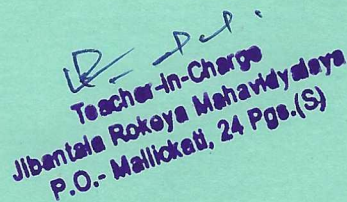 Teacher-in-Charge
Jibantala Rokeya Mahavidyalaya
P.O.- Mallickati, 24 Pgs.(S)